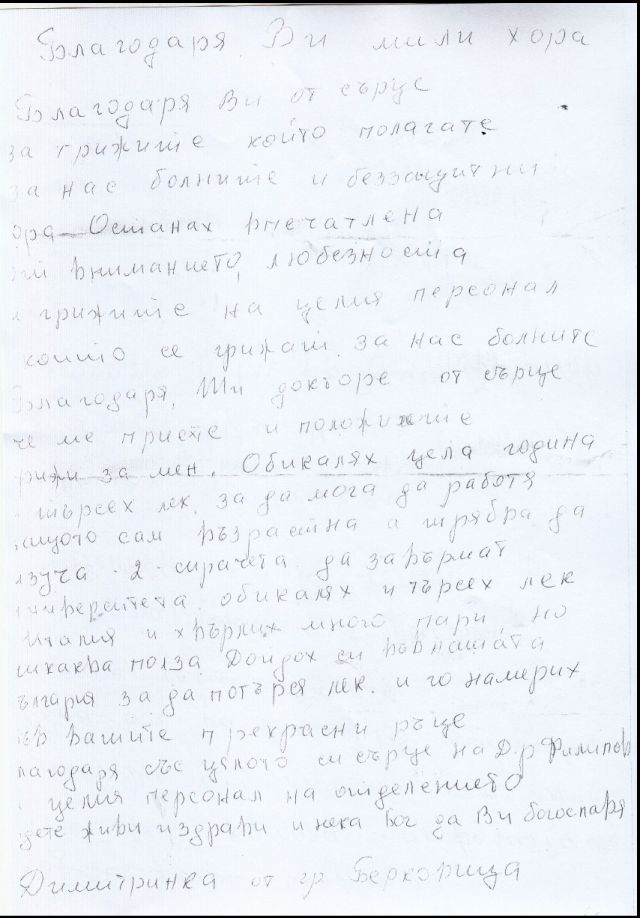 Благодаря Ви мили хора
Благодаря Ви от сърце
за грижите който полагате
за нас болните и беззащитни
ора Останах впечатлена
вниманието, любезноста
грижите на целия персонал
които се грижат за нас болните
Благодаря Ти докторе от сърце
че ме приехте и положихте
рижи за мен. Обикалях цяла година
търсех лек за да мога да работя
ащото сам възрастна а трябва да
изуча 2 сирачета да завършат
университета обикалях и търсех лек
Италия и хвърлих много пари, но
никаква полза Дойдох си във нашата
ългария за да потърся лек. и го намерих
във вашите прекрасни ръце
лагодаря със цялото си сърце на Д-р Филипов
целия персонал на отделението
дете живи и здрави и нека Бог да Ви богославя
Димитринка от гр Берковица